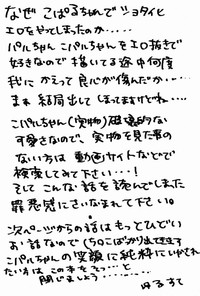 なぜ こぱるちゃんで ショタイヒ
エロをやってしまったか・・・・・
パルちゃん こパルちゃんをエロ抜きで
好きなので 描いてる途中何度
我に かえって 良心が傷んだか・・・・
まぁ 結局出して しまってますけどね・・・・
こパルちゃん(実物)殺人的な
可愛さなので、実物を見た事の
ない方は 動画サイトなどで
検索してみて下さい・・・!
そして こんな話を 読んでしまった
罪悪感に さいなまれて下さい。
次ページからの話は もっとひどい
お話なので
こパルちゃんの 笑顔に 純粋に いやされ
たい方は この本を そっ…と
閉じましょう・・・・・・・・